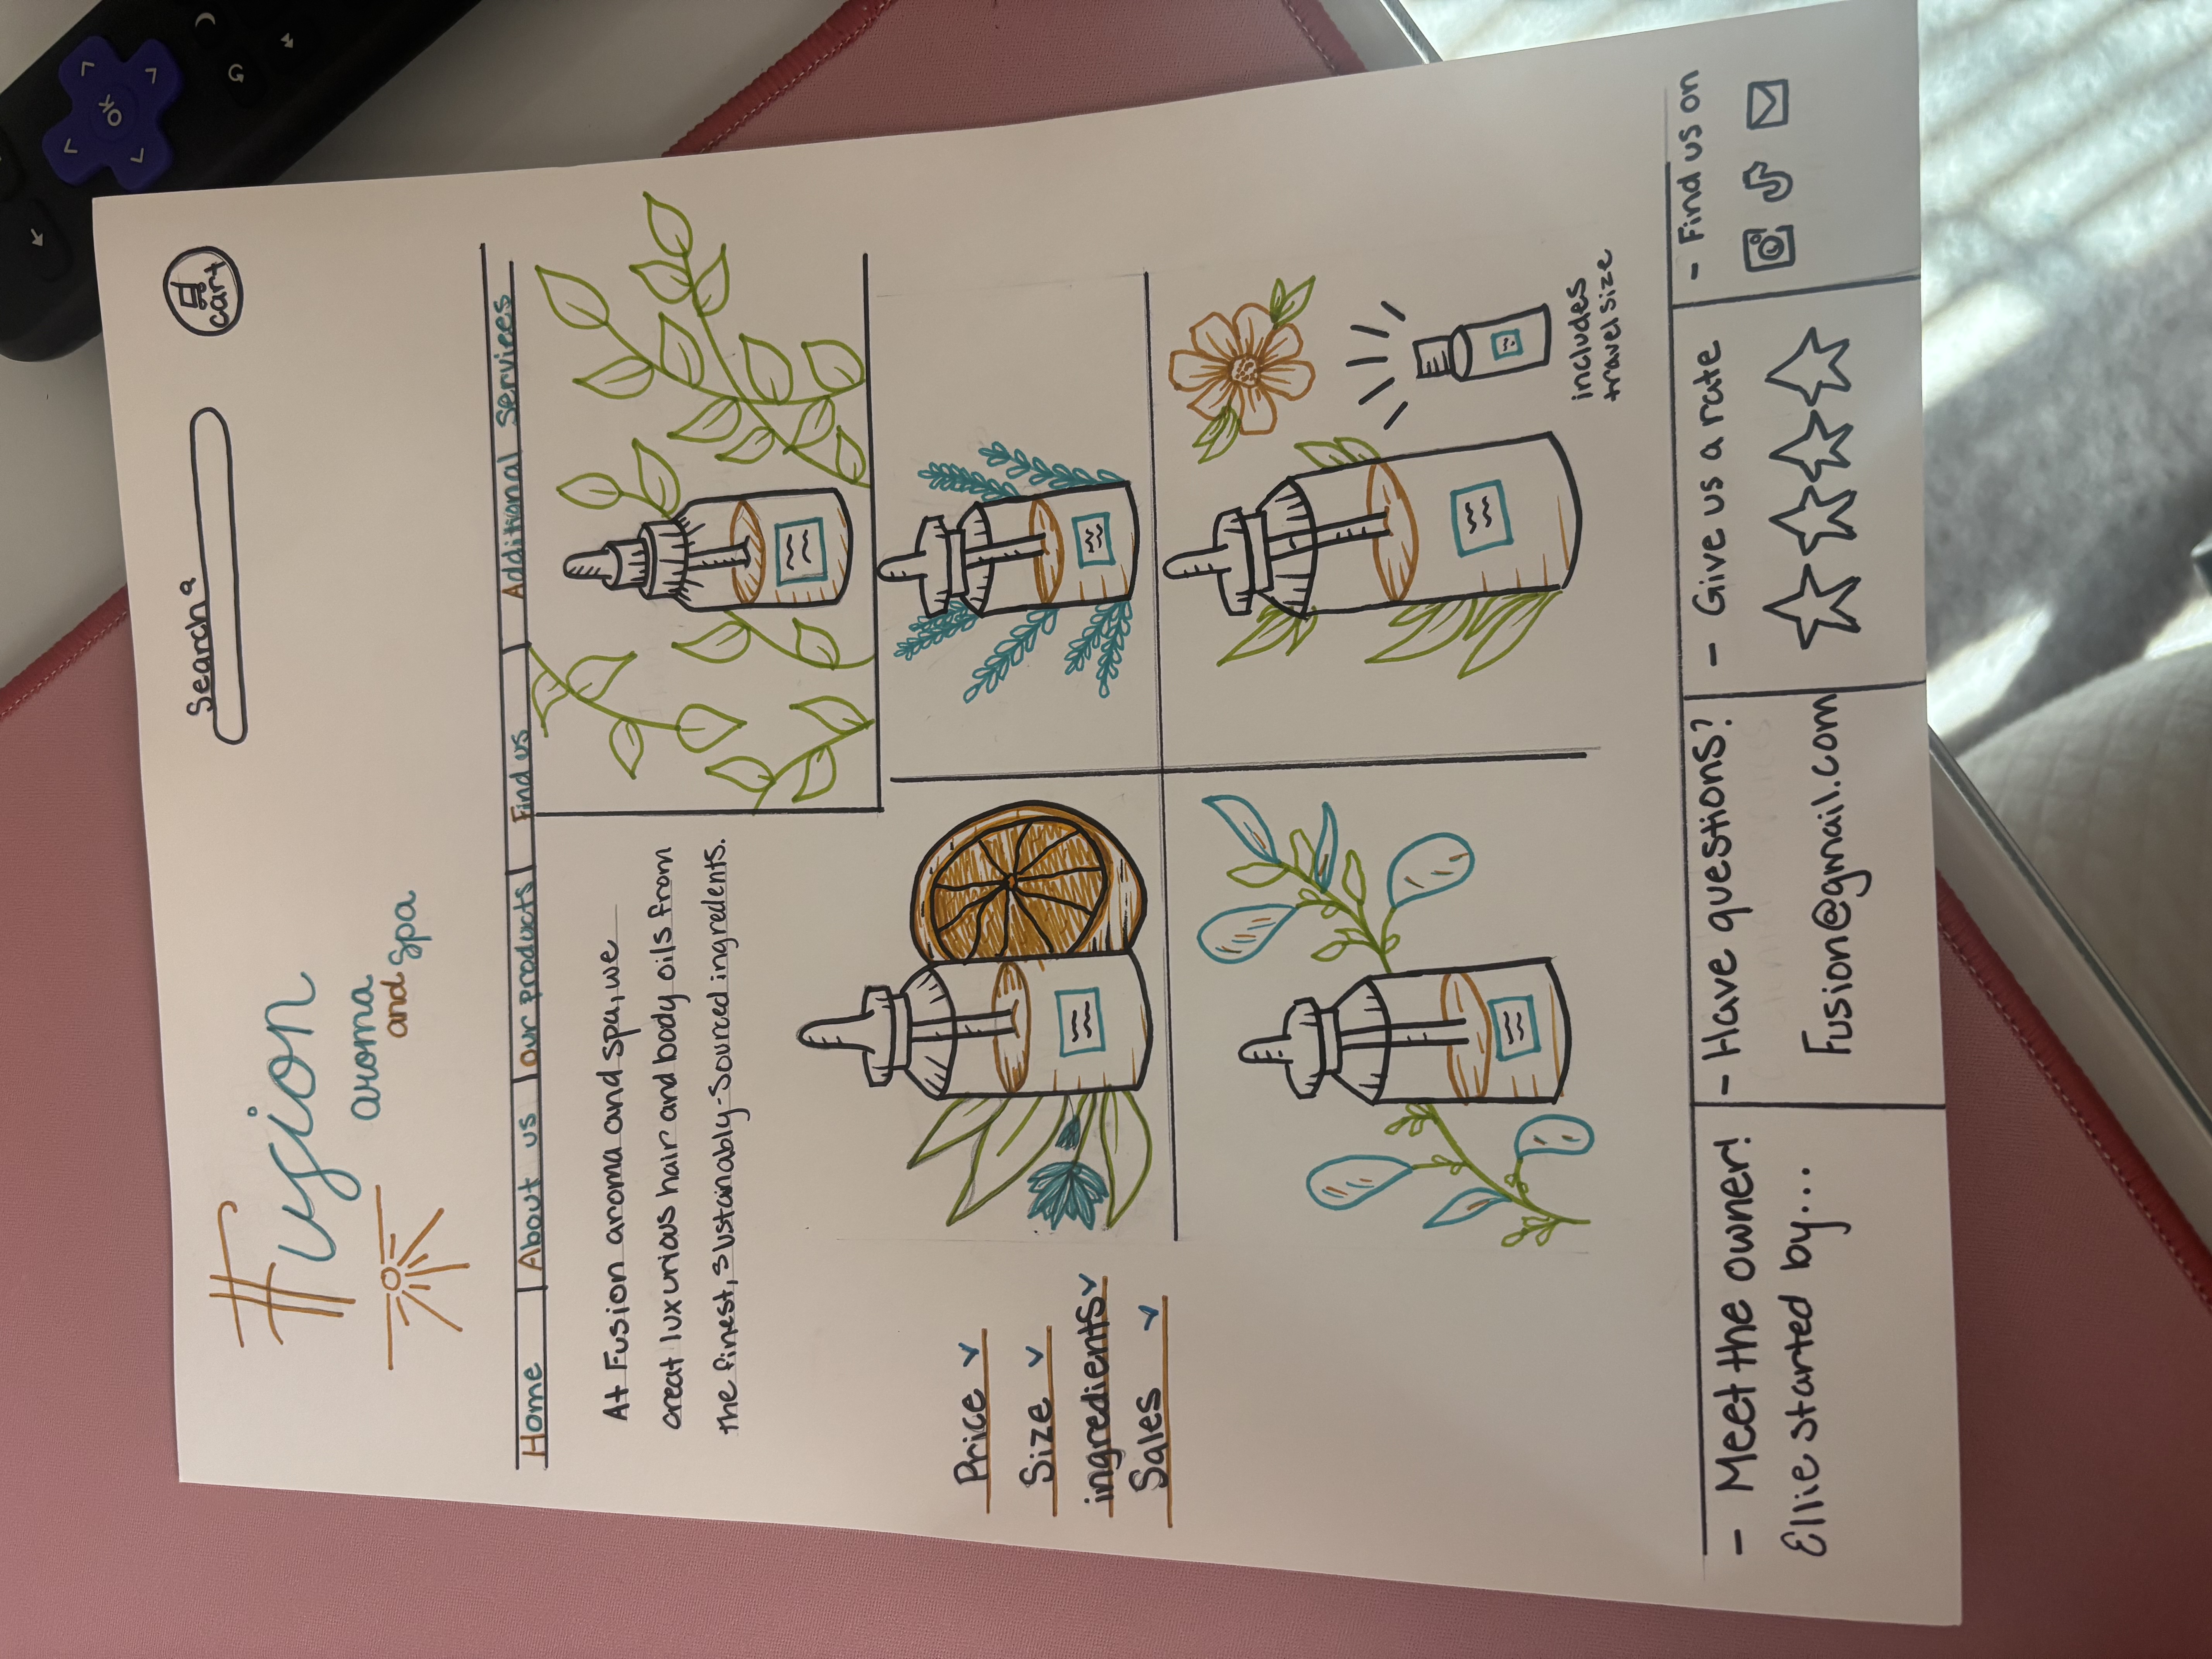 Search
cart
Fusion
aroma
and spa
Home
About us
our products
Find us
Additional Services
At Fusion aroma and spa, we
creat luxurious hair and body oils from
the finest, sustanably-sourced ingredents.
Price
Size
ingredients
Sales
includes
travel size
- Meet the owner!
Ellie started by...
- Have questions?
Fusion@gmail.com
- Give us a rate
- Find us on
OK